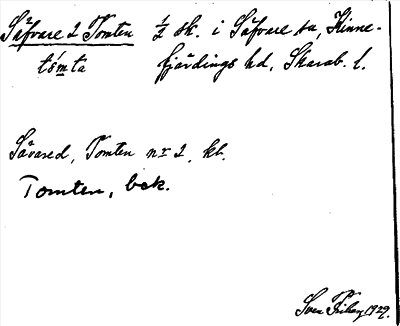 Säfvare 2 Tomten ½ sk. i Säfvare sn, Kinne-
tómta fjärdings hd, Skarab. l.
Sävared, Tomten nr 2, kt.
Tomten, bek.
Sven Friberg 1929.